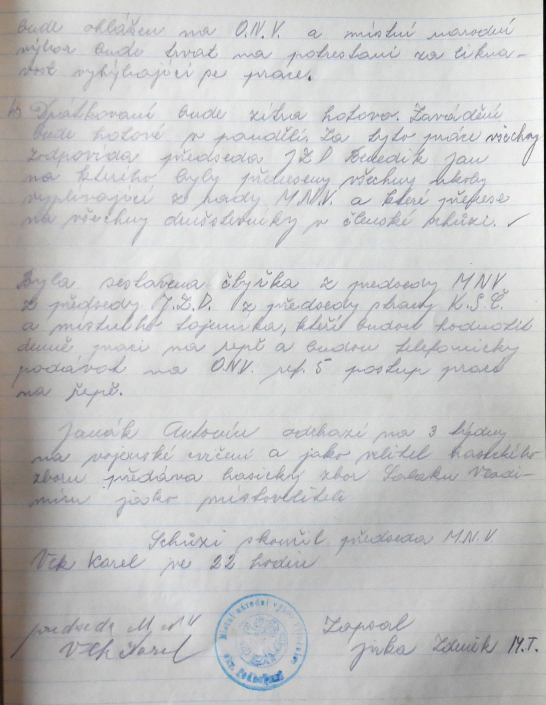 bude ohlášen na O.N.V. a místní národní
výbor bude trvat na potrestání za liknavost
vyhýbající se práce.
Dpátkovaní bude zítra hotovo. Zavádění
bude hotové v pondělí. Za tyto práce všechny
zodpovídá předseda JZD Benedik Jan
na kterého byly přeneseny všechny úkoly
vyplívající z rady M.N.V. a které přenese
na všechny družstevníky v členské schůzi. ✓
Byla sestavena čtyřka z předsedy MNV
z předsedy J.Z.D. z předsedy strany K.S.Č.
a místního tajemníka, kteří budou hodnotit
denně práci na řepě a budou telefonicky
podávat na ONV. ref. 5 postup prací
na řepě.
Janák Antonín odchází na 3 týdny
na vojenské cvičení a jako velitel hasického
zboru předává hasický zbor Salaku Vladimíru
jako místoveliteli
Schůzi skončil předseda M.N.V
Vlk Karel ve 22 hodin
předseda M N V Zapsal
Vlk Karel Jirka Zdeněk M.T.
Místní národní výbor